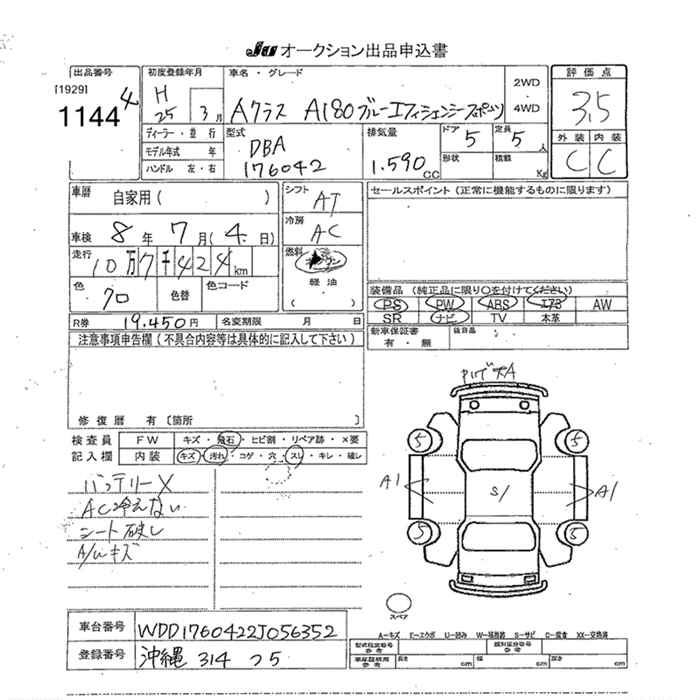 JU オークション出品申込書
出品番号 初度登録年月 車名・グレード 2WD・4WD 評価点
[1929]
1144 4
H 25年 3月
Aクラス A180 ブルーエフィシェンシースポーツ
3.5
ディーラー・並行 型式 排気量 ドア 定員 外装 内装
モデル年式 年 DBA 5 5人 C C
ハンドル 左・右 176042 1.590CC 形状 積載 Kg
車歴 自家用( ) シフト AT セールスポイント(正常に機能するものに限ります)
車検 8年 7月( 4日) 冷房 AC
走行 10万7千424km 燃料 ガソリン
軽油
( )
色 クロ 色替 色コード
装備品(純正品に限り○を付けてください)
PS PW ABS エアB AW
SR ナビ TV 本革
R券 19.450円 名変期限 月 日 新車保証書 有・無 後日品
注意事項申告欄(不具合内容等は具体的に記入して下さい)
修復歴 有〔箇所 〕
検査員 FW キズ・飛石・ヒビ割・リペア跡・X要
記入欄 内装 キズ・汚れ・コゲ・穴・スレ・キレ・破レ
バッテリーX
AC冷えない
シート破レ
A/Wキズ
5 5
A1 S/ A1
5 5
スペア
A―キズ E―エクボ U―凹み W―補修跡 S―サビ C―腐食 XX―交換済
車台番号 WDD1760422J056352
登録番号 沖縄 314 つ5
型式指定番号 参考 類別区分番号 参考
車庫証明用 参考 長さ cm 幅 cm 高さ cm